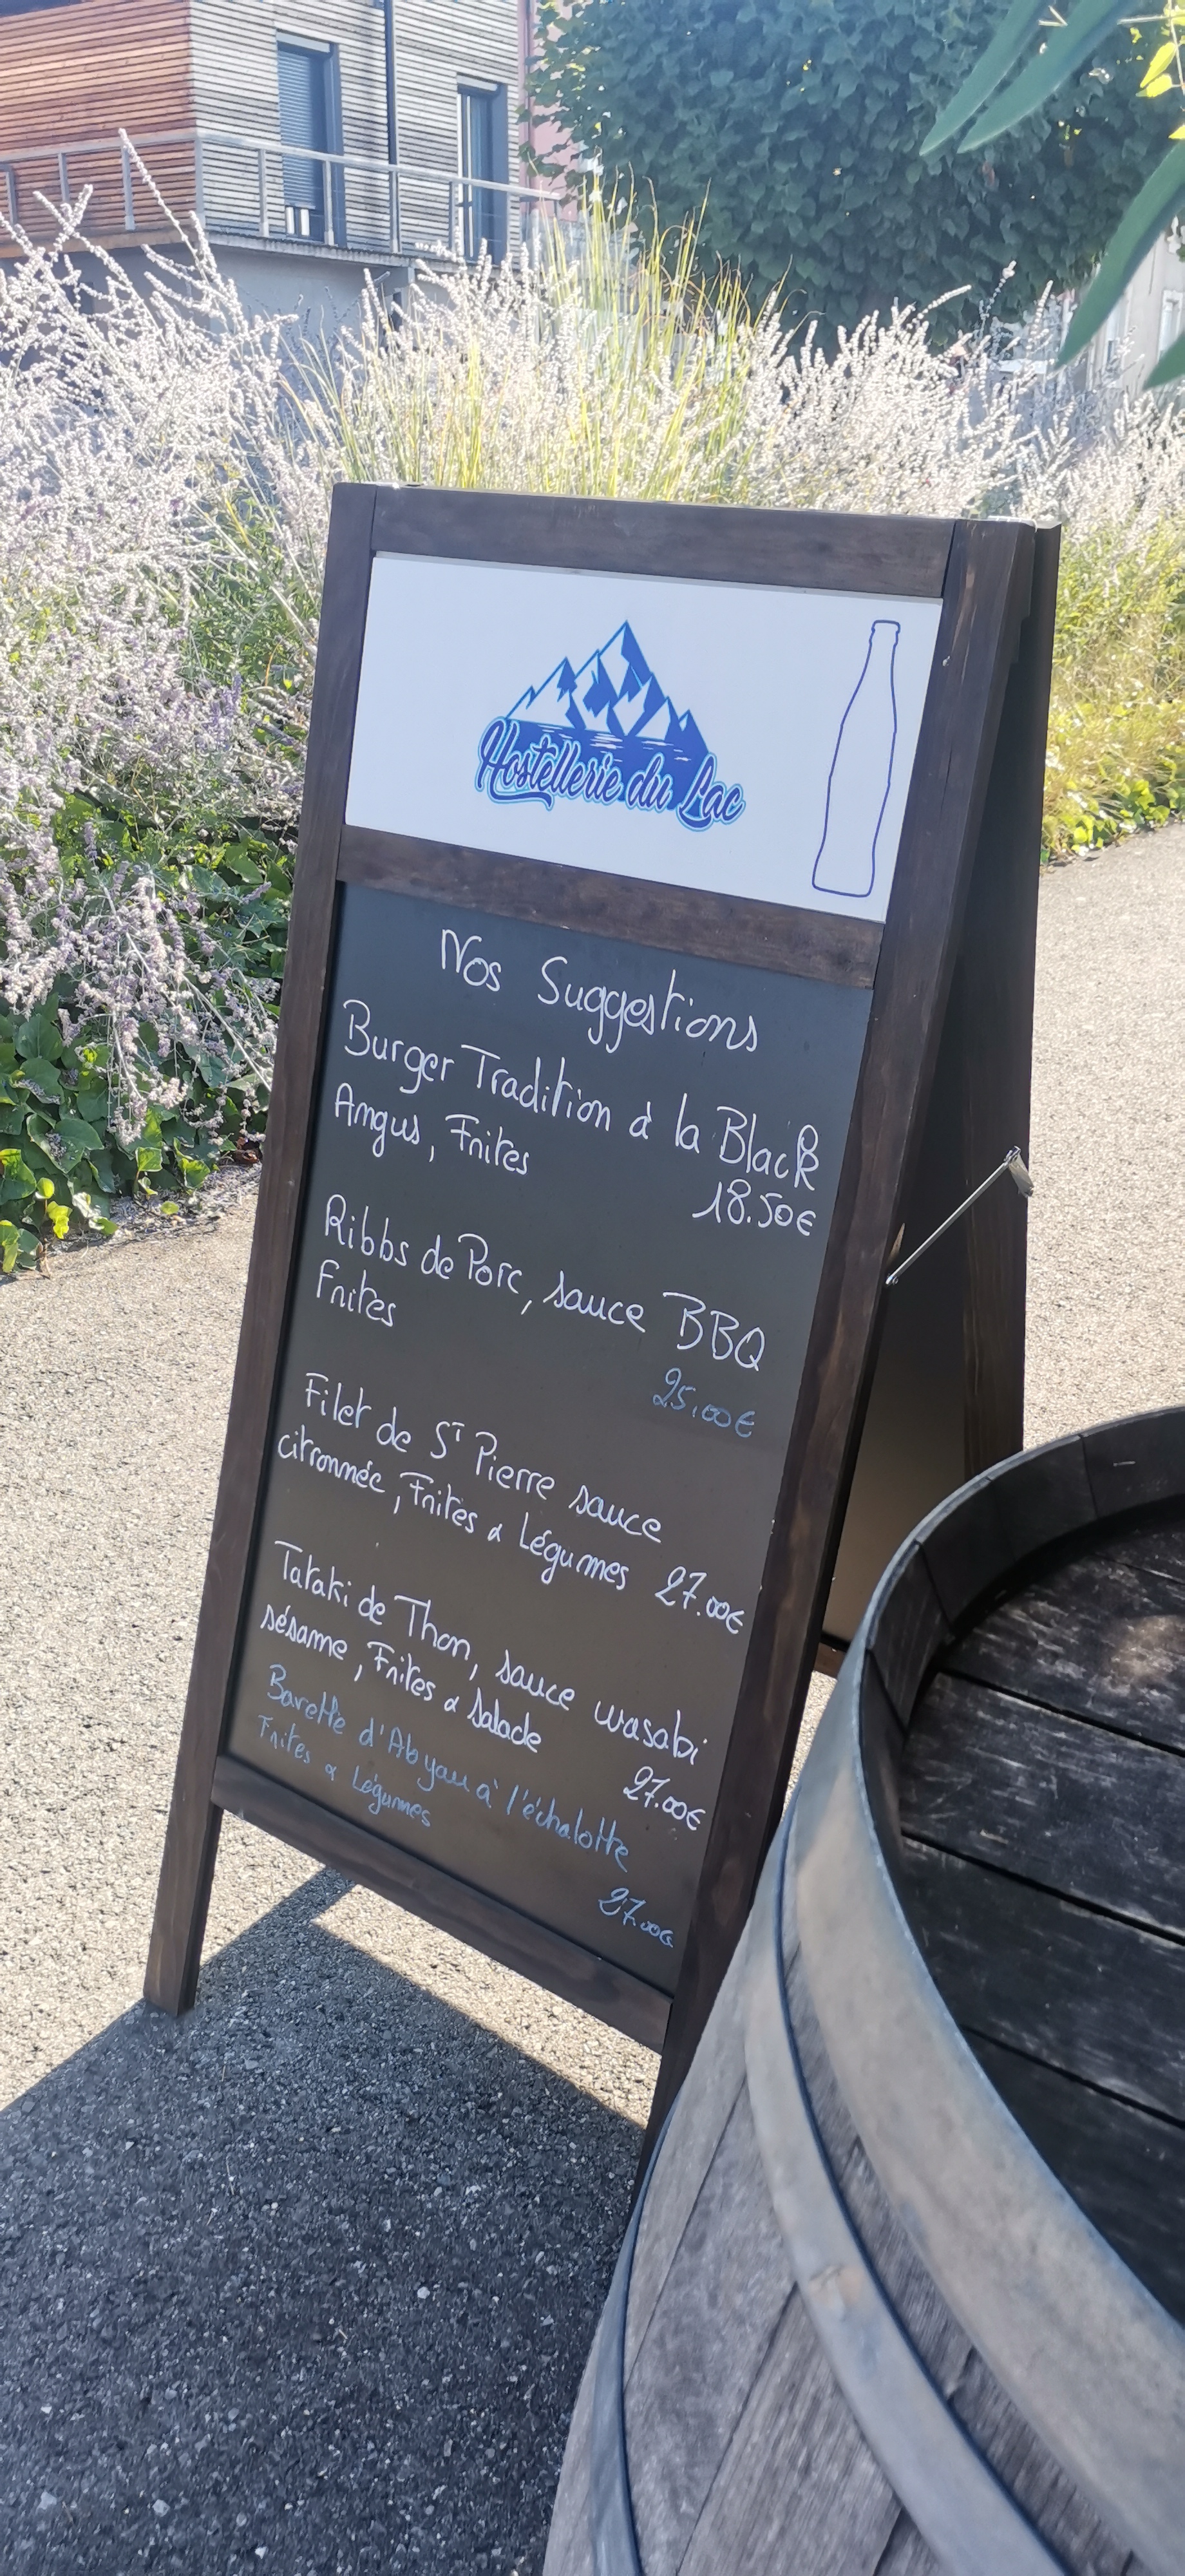 Hostellerie du Lac
Nos Suggestions
Burger Tradition à la Black
Angus, Frites
18.50€
Ribbs de Porc, sauce BBQ
Frites
25.00€
Filet de ST Pierre sauce
citronnée, Frites & Légumes 27.00€
Tataki de Thon, sauce wasabi
sésame, Frites & Salade
27.00€
Bavette d'Aloyau à l'échalotte
Frites & Légumes
27.00€